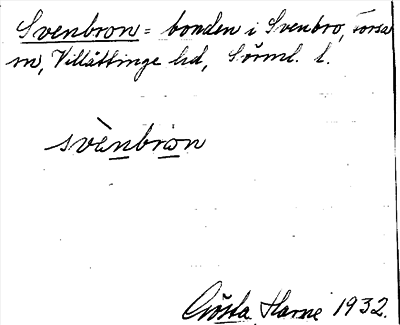 Svenbron = bonden i Svenbro, Torsåker
sn, Villåttinge hd, Sörml. l.
svènbròn
Gösta Harne 1932.